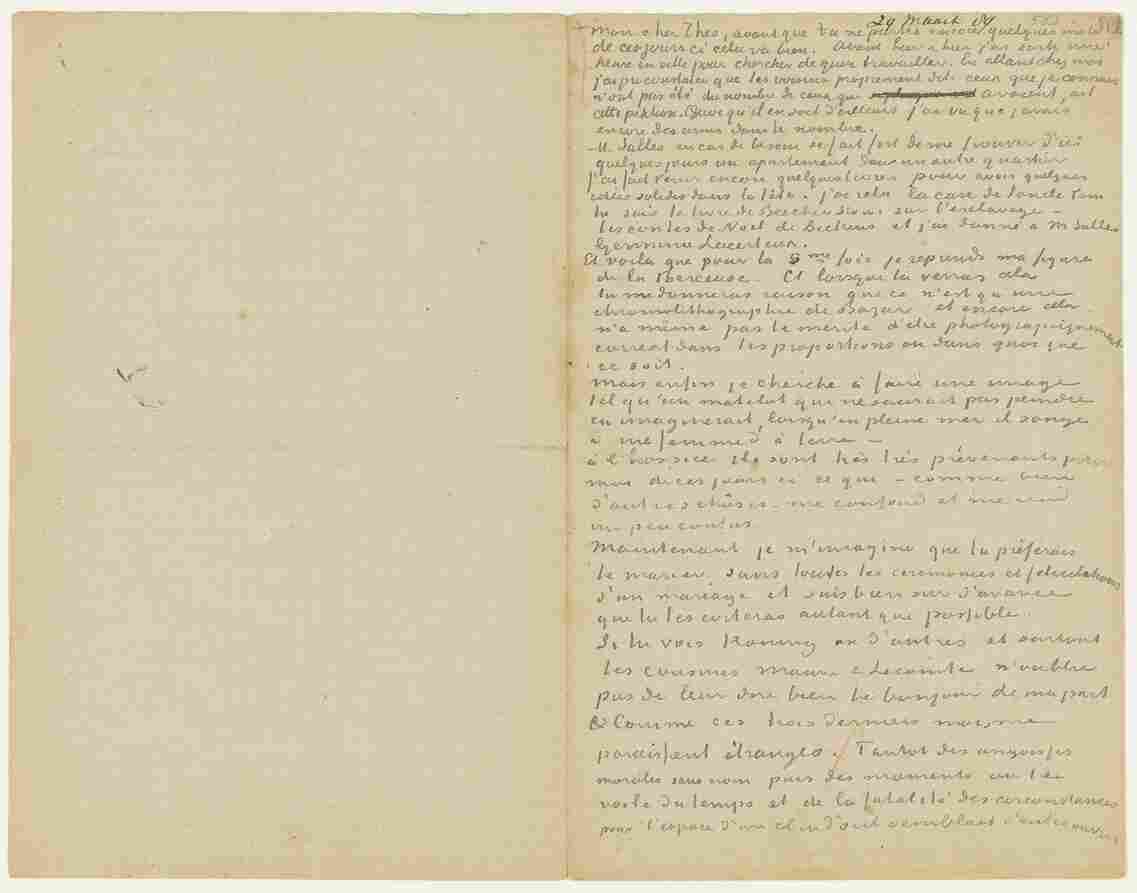 29 Maart 89
Mon cher Theo, avant que tu ne partes encore quelques mots
de ces jours ci cela va bien. Avant hier & hier j'ai sorti une
heure en ville pour chercher de quoi travailler. En allant chez moi
j'ai pu constater que les voisins proprement dits ceux que je connais
n'ont pas été du nombre de ceux qui avaient fait
cette petition. Quoi qu'il en soit d'ailleurs j'ai vu que j'avais
encore des amis dans le nombre.
M. Salles en cas de besoin se fait fort de me trouver d'ici
quelques jours un apartement dans un autre quartier
j'ai fait venir encore quelques livres pour avoir quelques
idées solides dans la tête. j'ai relu la case de l'oncle Tom
tu sais le livre de Beecher Stowe sur l'esclavage –
les contes de Noel de Dickens et j'ai donné à M Salles
Germinie Lacerteux.
Et voila que pour la 5me fois je reprends ma figure
de la Berceuse. Et lorsque tu verras cela
tu me donneras raison que ce n'est qu'une
chromolithographie de bazar et encore cela
n'a même pas le mérite d'être photographiquement
correct dans les proportions ou dans quoi que
ce soit.
Mais enfin je cherche à faire une image
tel qu'un matelot qui ne saurait pas peindre
en imaginerait lorsqu'en pleine mer il songe
à une femme d à terre –
à l'hospice ils sont très très prévenants pour
moi de ces jours ci ce qui – comme bien
d'autres choses – me confond et me rend
un peu confus.
Maintenant je m'imagine que tu préférais
te marier sans toutes les ceremonies et félicitations
d'un mariage et suis bien sur d'avance
que tu les eviteras autant que possible.
Si tu vois Koning ou d'autres et surtout
les cousines Mauve & Lecomte n'oublie
pas de leur dire bien le bonjour de ma part
Comme ces trois derniers mois me
paraissent étranges. Tantot des angoisses
morales sans nom puis des moments ou le
voile du temps et de la fatalité des circonstances
pour l'espace d'un clin d'oeil semblait s'entrouvrir